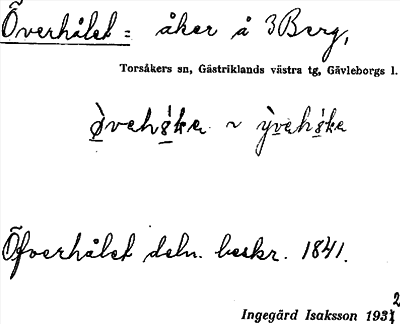 Överhålet = åker å 3 Berg,
Torsåkers sn, Gästriklands västra tg, Gävleborgs l.
Öfverhålet deln. beskr. 1841.
Ingegärd Isaksson 1932